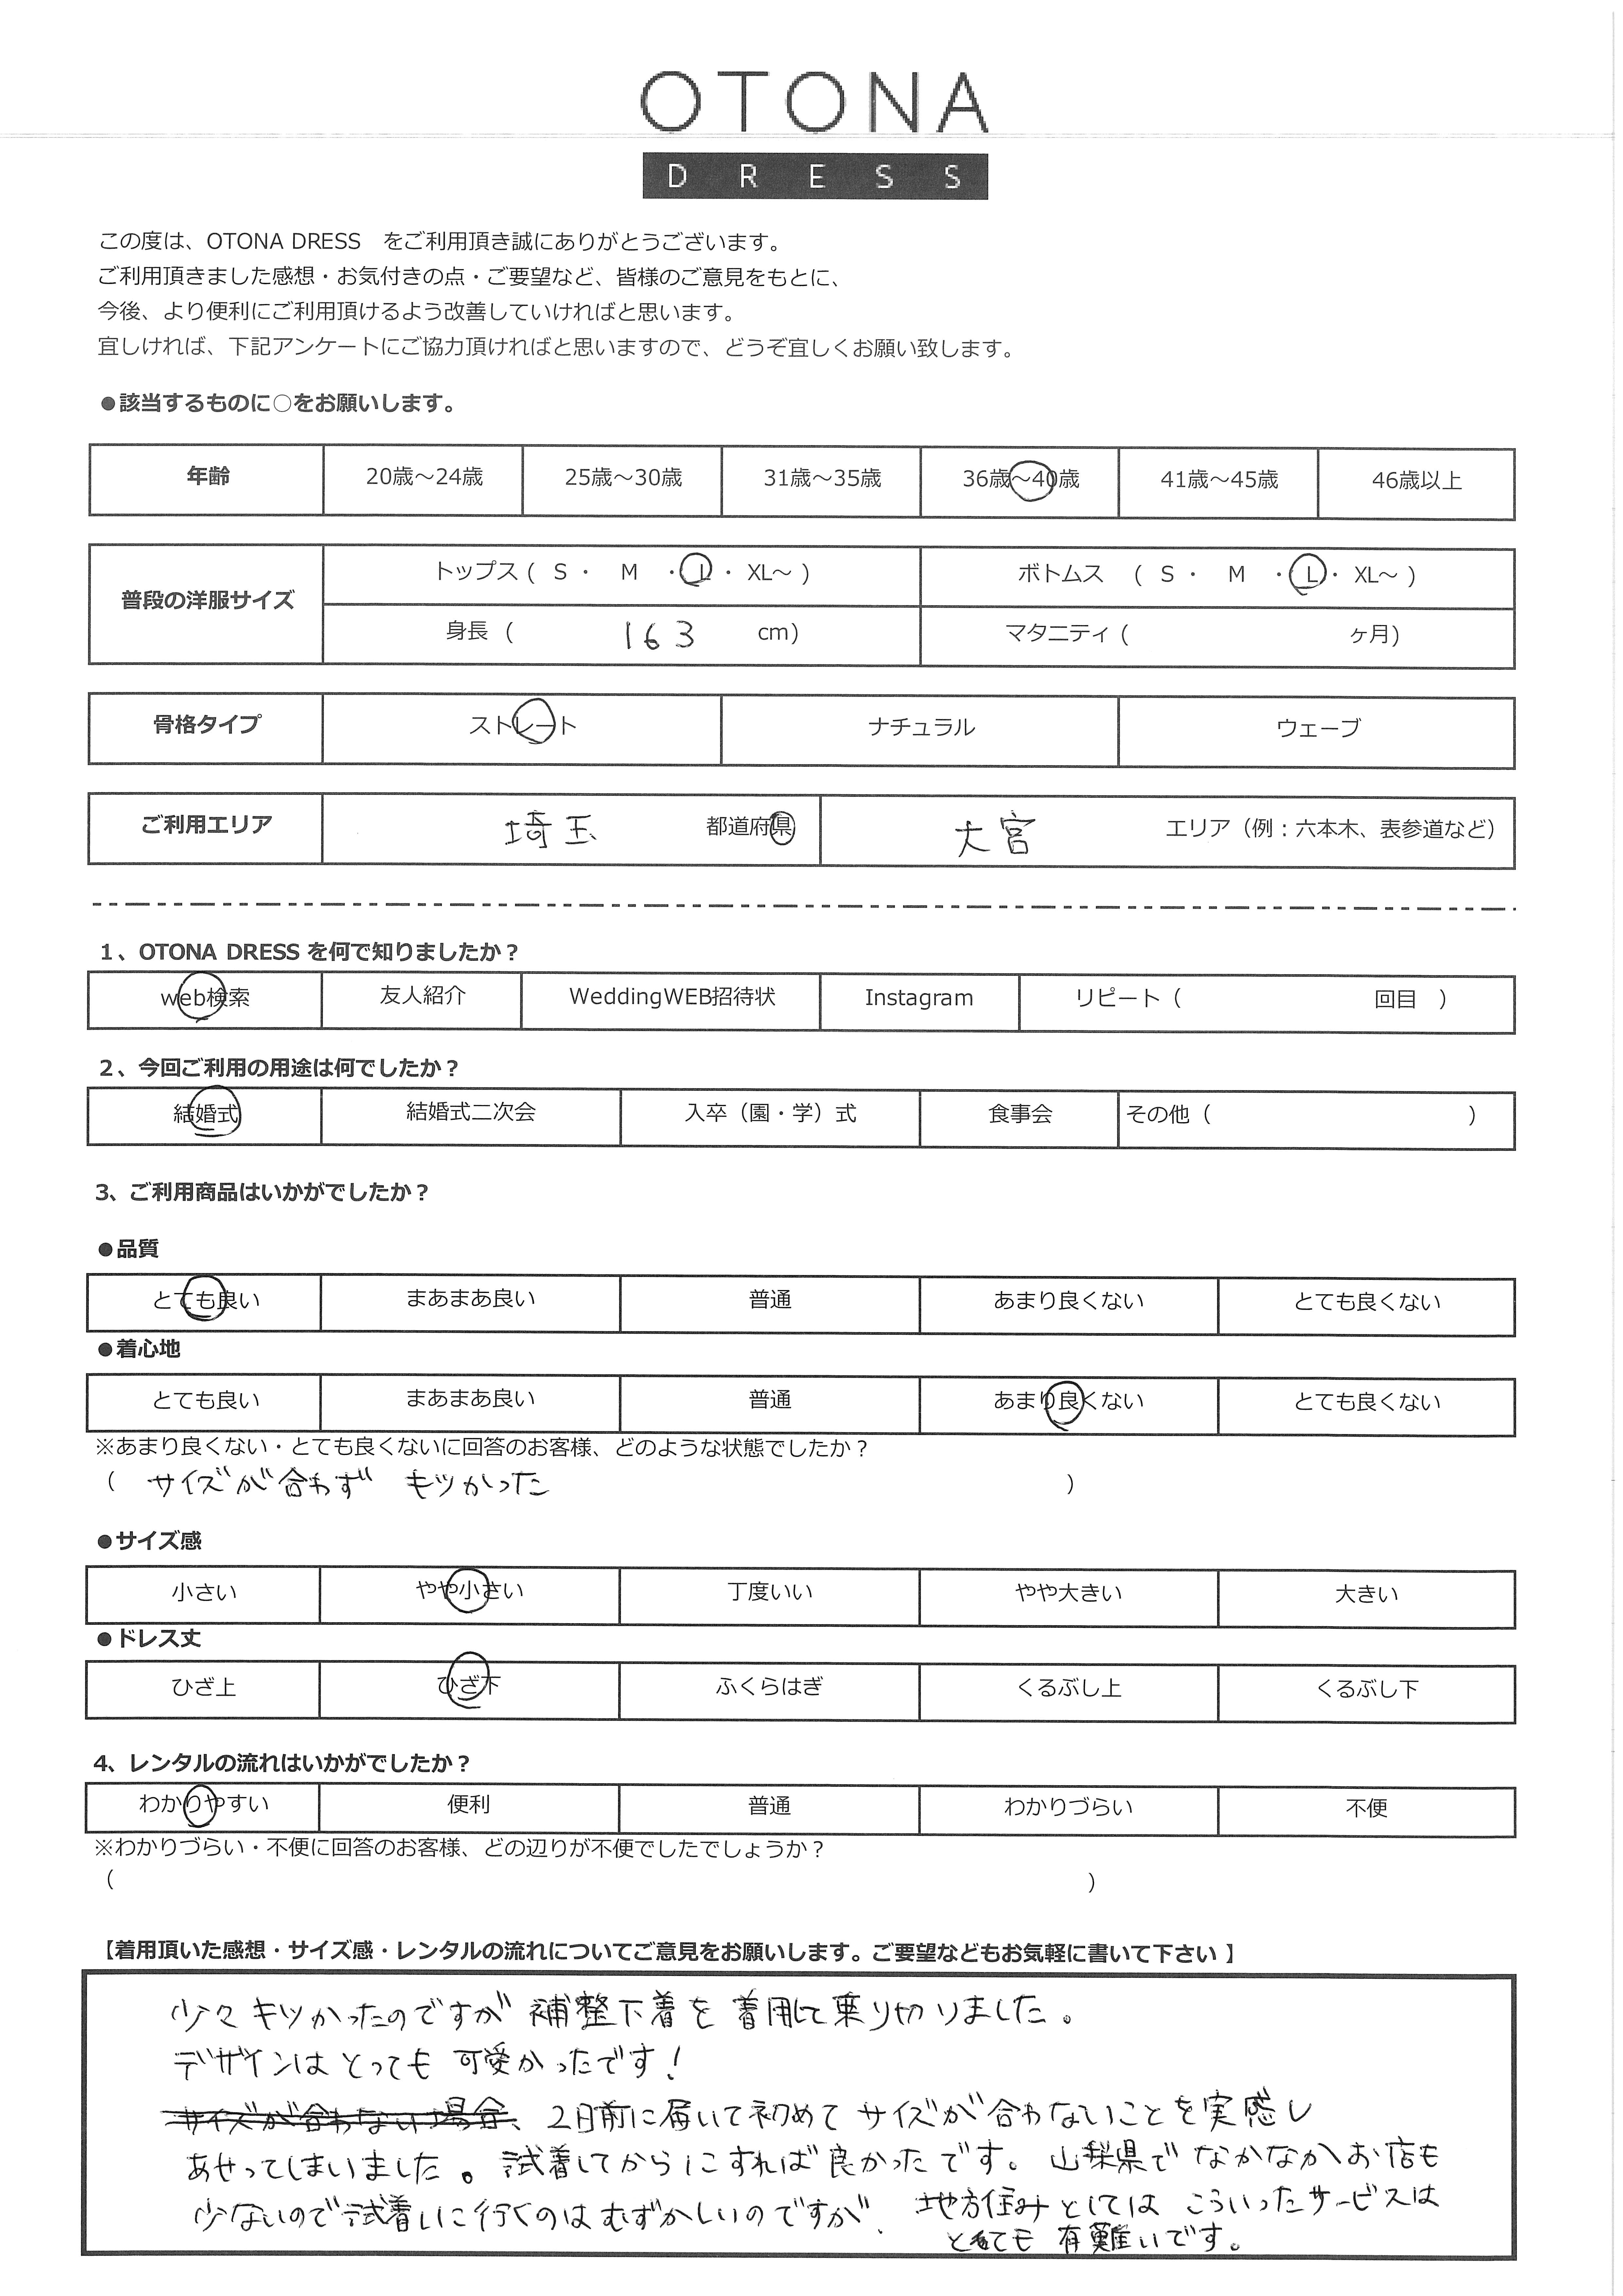 OTONA
DRESS
この度は、OTONA DRESS　をご利用頂き誠にありがとうございます。
ご利用頂きました感想・お気付きの点・ご要望など、皆様のご意見をもとに、
今後、より便利にご利用頂けるよう改善していければと思います。
宜しければ、下記アンケートにご協力頂ければと思いますので、どうぞ宜しくお願い致します。
●該当するものに○をお願いします。
年齢 20歳～24歳 25歳～30歳 31歳～35歳 36歳～40歳 41歳～45歳 46歳以上
普段の洋服サイズ トップス ( S ・ M ・ L ・ XL～ ) ボトムス ( S ・ M ・ L ・ XL～ )
身長 ( 163 cm) マタニティ ( ヶ月)
骨格タイプ ストレート ナチュラル ウェーブ
ご利用エリア 埼玉 都道府県 大宮 エリア（例：六本木、表参道など）
1、OTONA DRESS を何で知りましたか？
web検索 友人紹介 WeddingWEB招待状 Instagram リピート（ 回目 ）
2、今回ご利用の用途は何でしたか？
結婚式 結婚式二次会 入卒（園・学）式 食事会 その他（ ）
3、ご利用商品はいかがでしたか？
●品質
とても良い まあまあ良い 普通 あまり良くない とても良くない
●着心地
とても良い まあまあ良い 普通 あまり良くない とても良くない
※あまり良くない・とても良くないに回答のお客様、どのような状態でしたか？
（ サイズが合わず キツかった ）
●サイズ感
小さい やや小さい 丁度いい やや大きい 大きい
●ドレス丈
ひざ上 ひざ下 ふくらはぎ くるぶし上 くるぶし下
4、レンタルの流れはいかがでしたか？
わかりやすい 便利 普通 わかりづらい 不便
※わかりづらい・不便に回答のお客様、どの辺りが不便でしたでしょうか？
（ ）
【着用頂いた感想・サイズ感・レンタルの流れについてご意見をお願いします。ご要望などもお気軽に書いて下さい 】
少々キツかったのですが 補整下着を着用して乗り切りました。
デザインはとっても 可愛かったです！
サイズが合わない場合、2日前に届いて初めてサイズが合わないことを実感し
あせってしまいました。試着してからにすれば良かったです。山梨県でなかなかお店も
少ないので試着しに行くのはむずかしいのですが、地方住みとしては こういったサービスは
とても 有難いです。